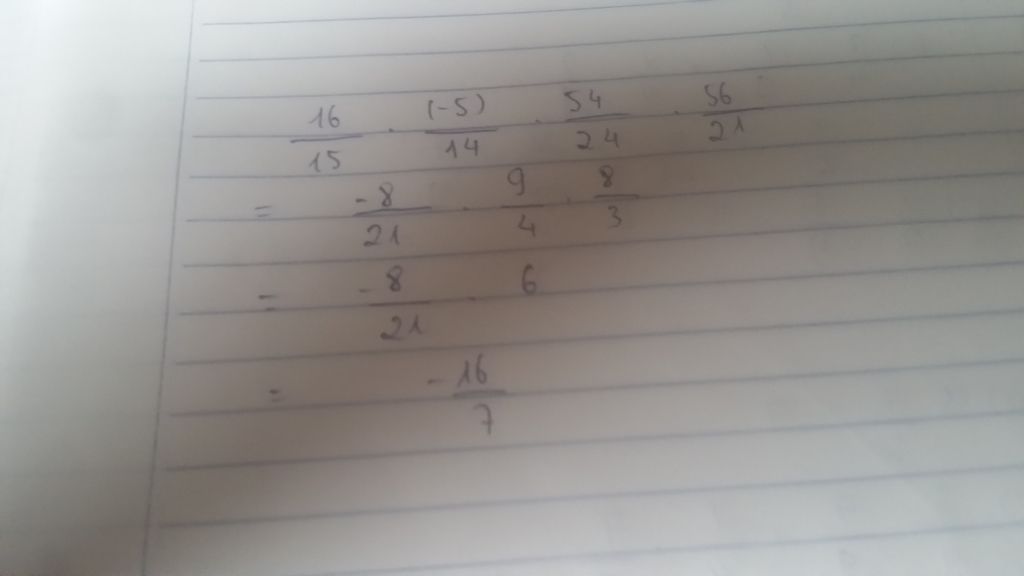 16/15 . (-5)/14 . 54/24 . 56/21
= -8/21 . 9/4 . 8/3
= -8/21 . 6
= -16/7